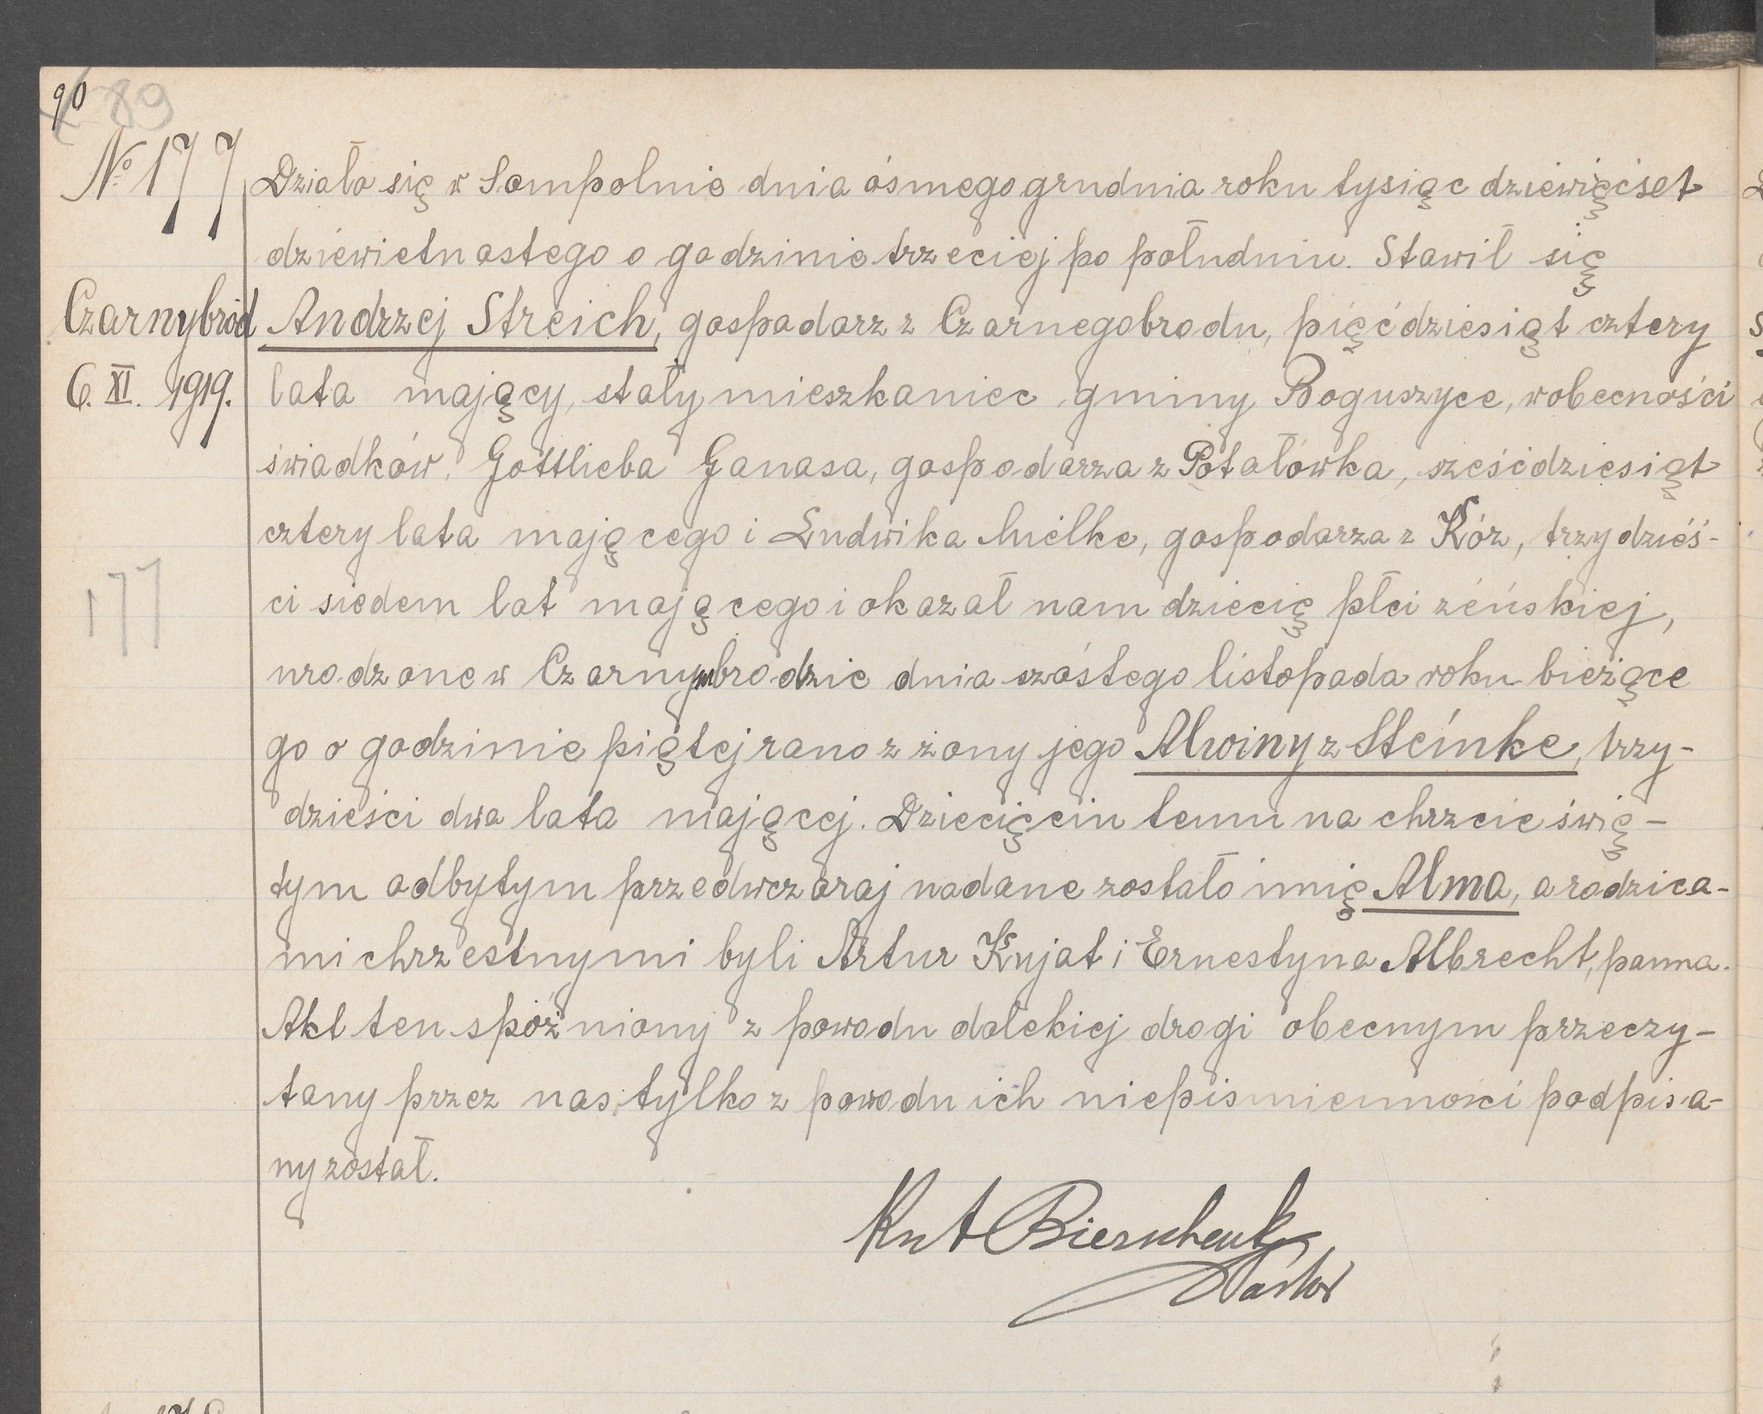 90
89
№ 177
Działo się w Sompolnie dnia ósmego grudnia roku tysiąc dziewięćset
dziewietnastego o godzinie trzeciej po południu. Stawił się
Czarnybród
Andrzej Streich, gospodarz z Czarnegobrodu, pięćdziesiąt cztery
6. XI. 1919.
lata mający, stały mieszkaniec gminy Boguszyce, wobecności
świadków: Gottlieba Ganasa, gospodarza z Potałówka, sześćdziesiąt
cztery lata mającego i Ludwika Mielke, gospodarza z Kóz, trzydzieś-
ci siedem lat mającego i okazał nam dziecię płci żeńskiej,
177
urodzone w Czarnymbrodzie dnia szóstego listopada roku bieżące
go o godzinie piątej rano z żony jego Alwiny z Steinke, trzy-
dzieści dwa lata mającej. Dziecięciu temu na chrzcie świę-
tym odbytym przedwczoraj nadane zostało imię Alma, a rodzica-
mi chrzestnymi byli Artur Kujat i Ernestyna Albrecht, panna.
Akt ten spóźniony z powodu dalekiej drogi obecnym przeczy-
tany przez nas tylko z powodu ich niepismienności podpisa-
ny został.
Bierschenk
Pastor